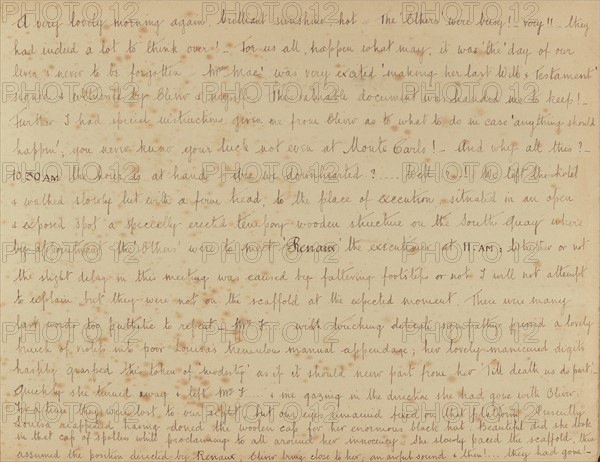 A very lovely morning again, brilliant sunshine, hot – The 'Others' were busy! – very!! – they
had indeed a lot to think over! – For us all, happen what may, it was the 'day of our
lives & never to be forgotten – Mrs 'Mac' was very 'making her last Will & Testament'
signed & by Oliver & myself – The valuable document was handed me to keep! –
Further I had special instructions given me from Oliver as to what to do in case 'anything should
happen'; you never know your luck not even at Monte Carlo! – And why all this? –
10.30 AM the hour is at hand – Are we downhearted? .... Well no! – We left the hotel
& walked slowly but with a firm head, to the place of execution, situated in an open
& exposed spot a specially erected temporary wooden structure on the South Quay where
by appointment the 'Others' were to meet 'Renaux' the executioner at 11. AM; Whether or not
the slight delay in this meeting was caused by faltering footsteps or not I will not attempt
to explain but they were not on the scaffold at the expected moment. There were many
last words too pathetic to repeat – Mr F with touching delicate sympathy pressed a lovely
bunch of violets into poor Louisa's tremulous manual appendage; her lovely manicured digits
hastily grasped this token of 'modesty' as if it should never part from her 'Till death us do part' –
Quickly she turned away & left Mr F & me gazing in the direction she had gone with Oliver.
they were lost to our sight but our eyes remained fixed on that platform. Presently
Louisa reappeared having donned the woolen cap for her enormous black hat. Beautiful did she look
in that cap of while proclaiming to all around her innocency. She slowly paced the scaffold, then
assumed the position directed by Renaux. Oliver being close to her, an awful sound & then! ... they had gone! –
PHOTO12